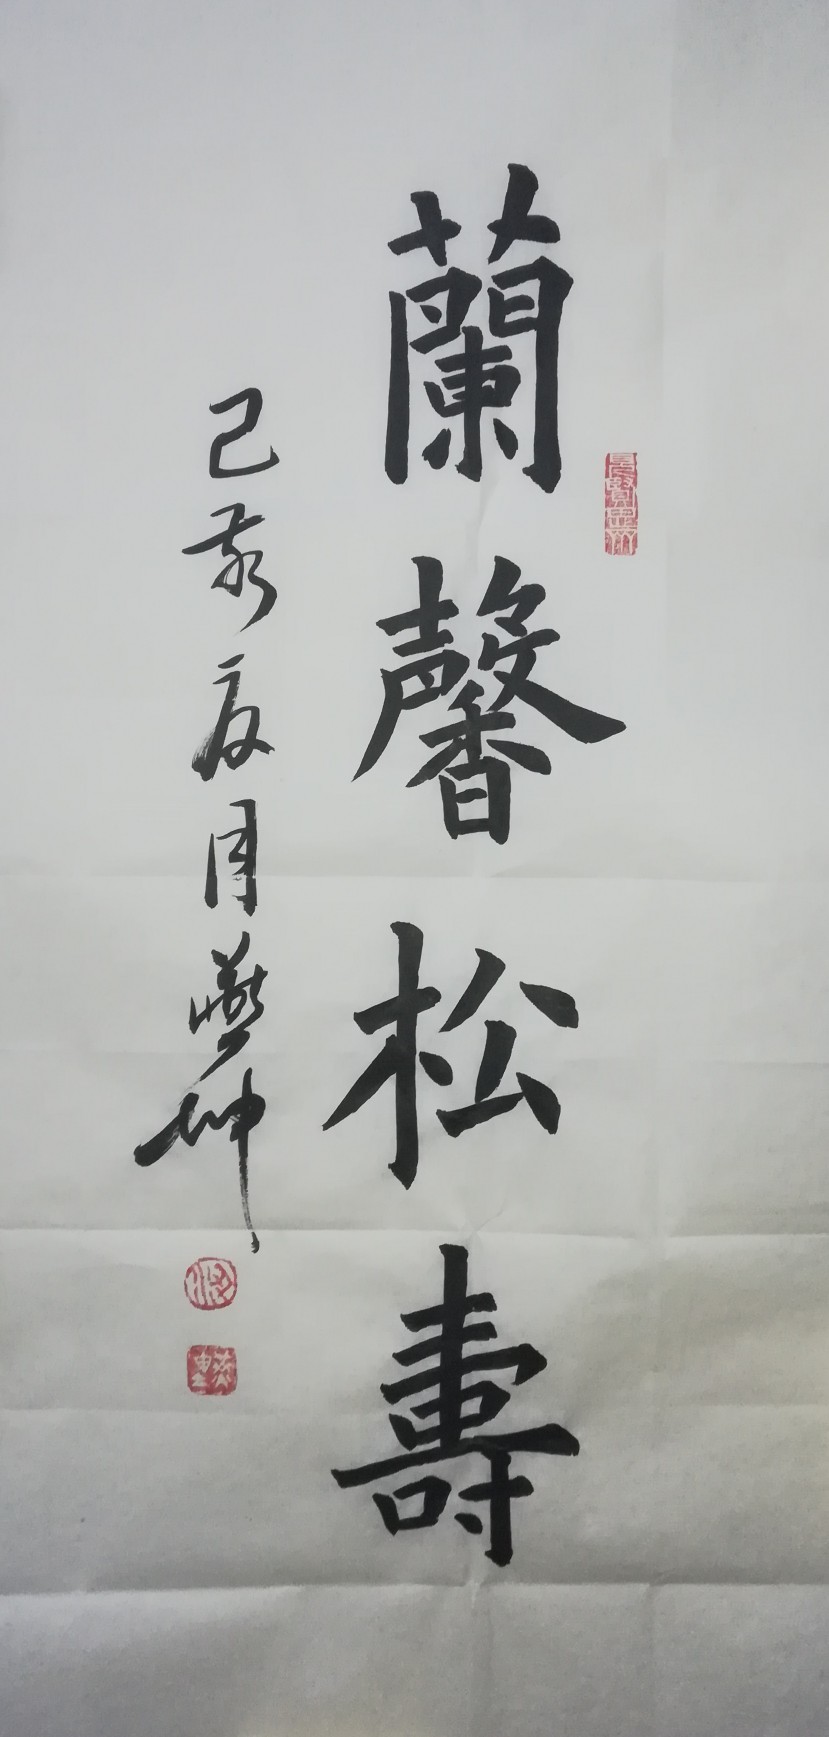 蘭馨松壽
己亥夏月燕坤